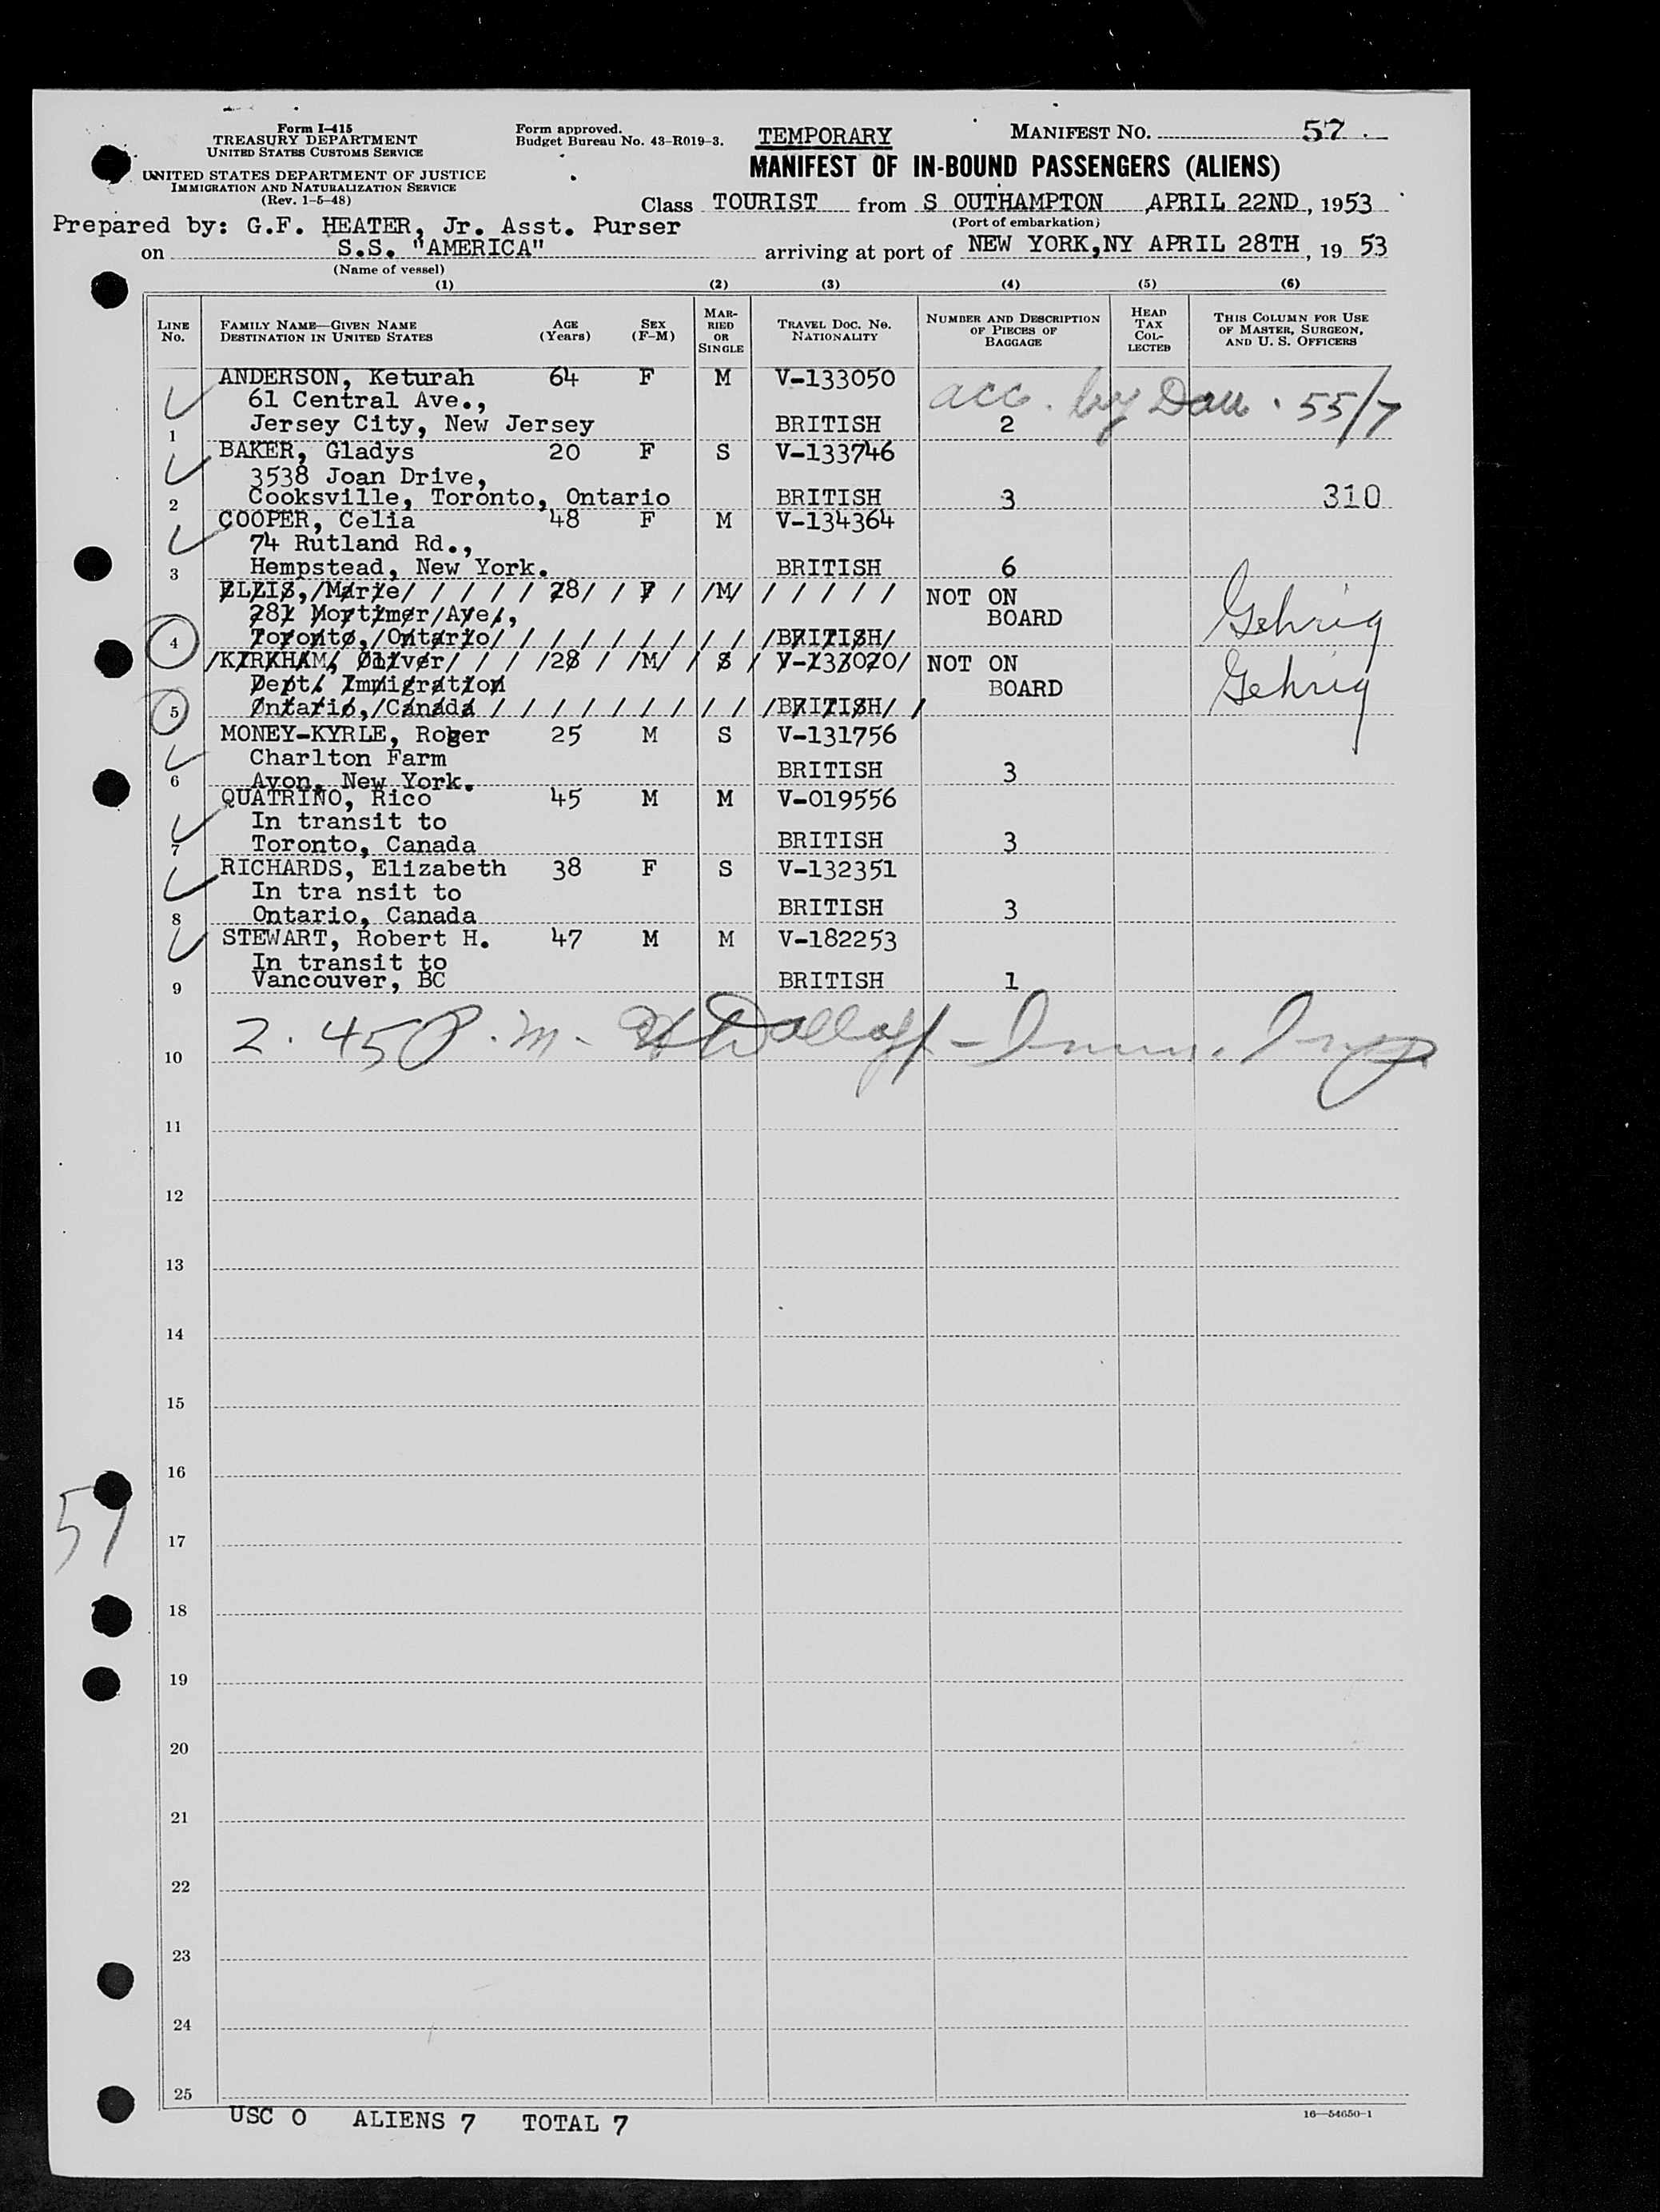 Form I-415
TREASURY DEPARTMENT
UNITED STATES CUSTOMS SERVICE
UNITED STATES DEPARTMENT OF JUSTICE
IMMIGRATION AND NATURALIZATION SERVICE
(Rev. 1-5-48)
Form approved.
Budget Bureau No. 43-R019-3.
TEMPORARY
MANIFEST NO. 57
MANIFEST OF IN-BOUND PASSENGERS (ALIENS)
Class TOURIST from S OUTHAMPTON APRIL 22ND, 1953
(Port of embarkation)
Prepared by: G.F. HEATER, Jr. Asst. Purser
on S.S. "AMERICA" arriving at port of NEW YORK,NY APRIL 28TH, 19 53
(Name of vessel)
(1) (2) (3) (4) (5) (6)
LINE No. FAMILY NAME—GIVEN NAME DESTINATION IN UNITED STATES AGE (Years) SEX (F-M) MARRIED OR SINGLE TRAVEL DOC. NO. NATIONALITY NUMBER AND DESCRIPTION OF PIECES OF BAGGAGE HEAD TAX COLLECTED THIS COLUMN FOR USE OF MASTER, SURGEON, AND U. S. OFFICERS
ANDERSON, Keturah 64 F M V-133050 acc. by Dau. 55/7
61 Central Ave.,
1 Jersey City, New Jersey BRITISH 2
BAKER, Gladys 20 F S V-133746
3538 Joan Drive,
2 Cooksville, Toronto, Ontario BRITISH 3 310
COOPER, Celia 48 F M V-134364
74 Rutland Rd.,
3 Hempstead, New York. BRITISH 6
ELLIS, Marie 28 F M NOT ON
281 Mortimer Ave., BOARD Gehrig
4 Toronto, Ontario BRITISH
KIRKHAM, Oliver 28 M S V-133020 NOT ON
Dept. Immigration BOARD Gehrig
5 Ontario, Canada BRITISH
MONEY-KYRLE, Roger 25 M S V-131756
Charlton Farm
6 Avon, New York. BRITISH 3
QUATRINO, Rico 45 M M V-019556
In transit to
7 Toronto, Canada BRITISH 3
RICHARDS, Elizabeth 38 F S V-132351
In tra nsit to
8 Ontario, Canada BRITISH 3
STEWART, Robert H. 47 M M V-182253
In transit to
9 Vancouver, BC BRITISH 1
2.45 P.M.
10
11
12
13
14
15
16
57
17
18
19
20
21
22
23
24
25
USC 0 ALIENS 7 TOTAL 7
16—54650-1